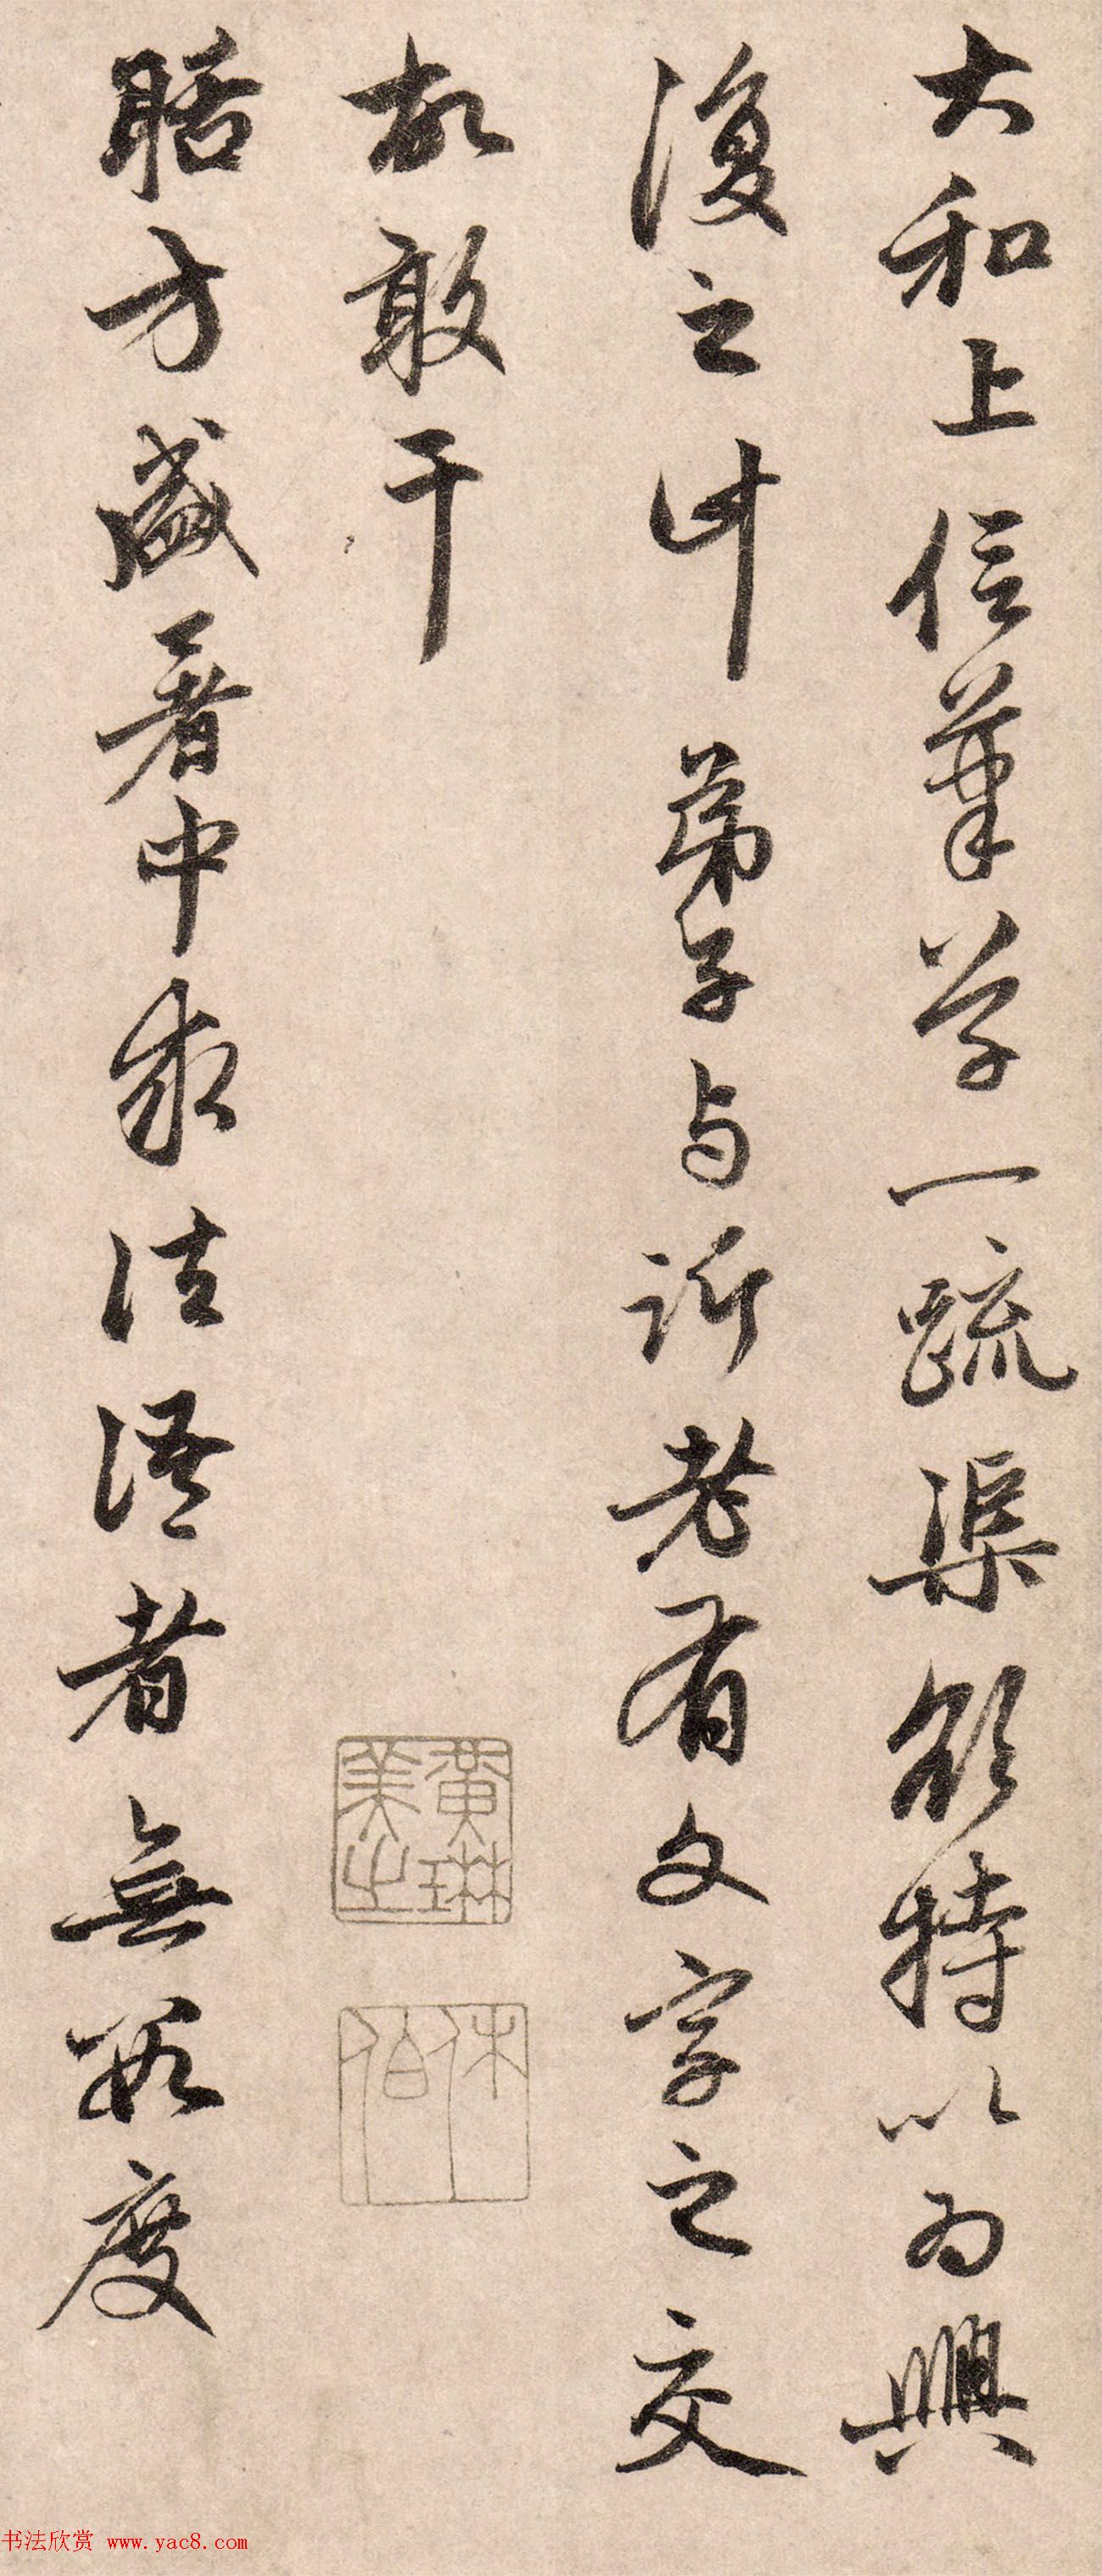 大和上信筆草一疏渠欲特以為興
復之計弟子与訢老有文字之交
故敢干
聒方盛暑中求法語者無數度
黄琳
美之
休伯
书法欣赏 www.yac8.com